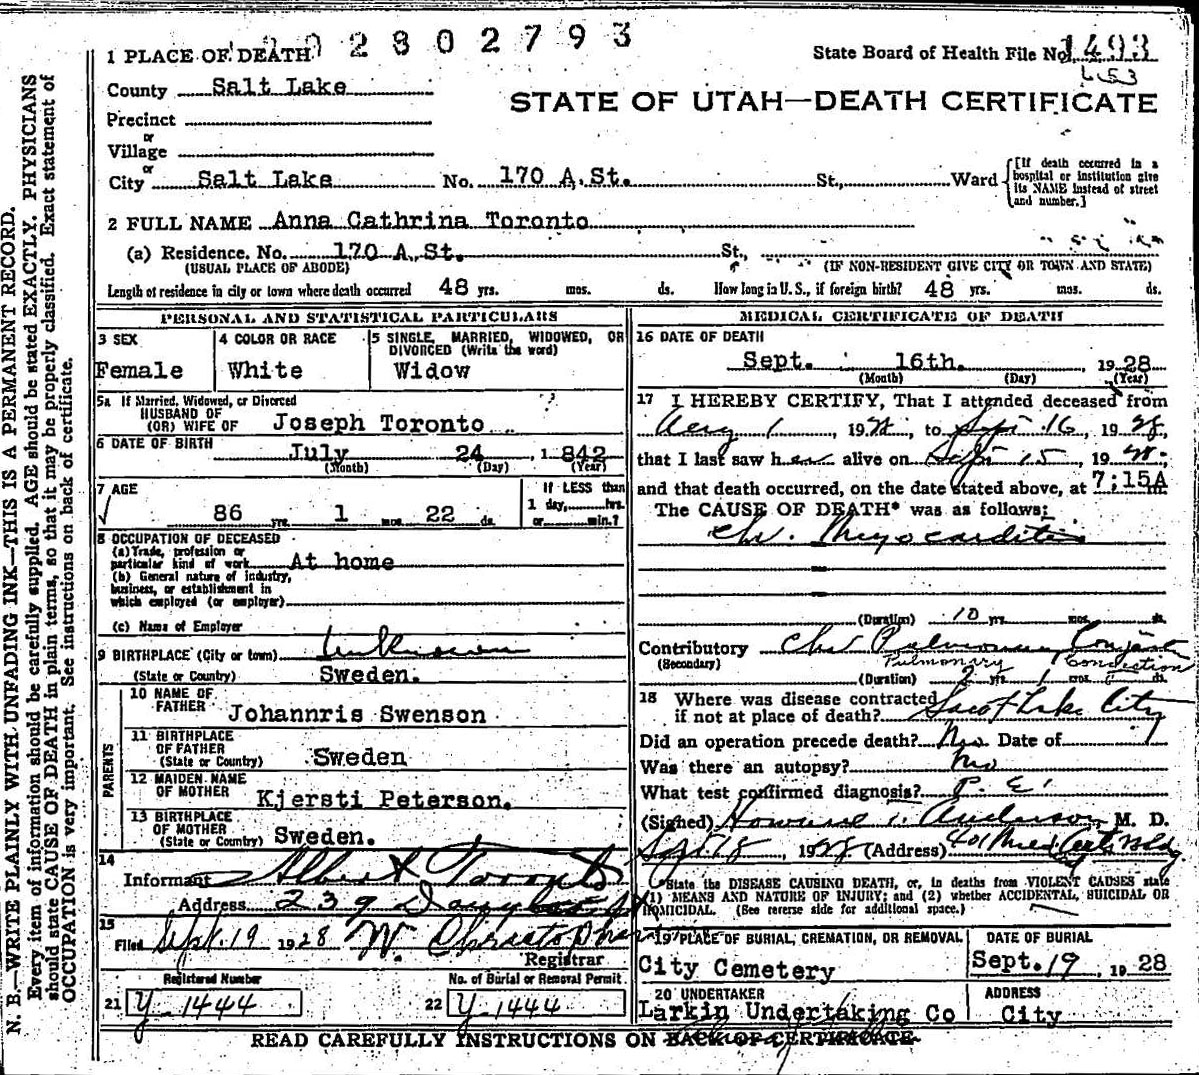 2802793
1 PLACE OF DEATH
State Board of Health File No. 1493
653
County Salt Lake
STATE OF UTAH—DEATH CERTIFICATE
Precinct
or
Village
or
City Salt Lake No. 170 A.St. St., Ward
[If death occurred in a hospital or institution give its NAME instead of street and number.]
2 FULL NAME Anna Cathrina Toronto
(a) Residence. No. 170 A.St. St.,
(USUAL PLACE OF ABODE) (IF NON-RESIDENT GIVE CITY OR TOWN AND STATE)
Length of residence in city or town where death occurred 48 yrs. mos. ds. How long in U. S., if foreign birth? 48 yrs. mos. ds.
PERSONAL AND STATISTICAL PARTICULARS
3 SEX
Female
4 COLOR OR RACE
White
5 SINGLE, MARRIED, WIDOWED, OR
DIVORCED (Write the word)
Widow
5a If Married, Widowed, or Divorced
HUSBAND OF
(OR) WIFE OF Joseph Toronto
6 DATE OF BIRTH July 24, 1842
(Month) (Day) (Year)
7 AGE
86 yrs. 1 mos. 22 ds.
If LESS than
1 day, hrs.
or min.?
8 OCCUPATION OF DECEASED
(a) Trade, profession or
particular kind of work At home
(b) General nature of industry,
business, or establishment in
which employed (or employer)
(c) Name of Employer
9 BIRTHPLACE (City or town) Unknown
(State or Country) Sweden.
PARENTS
10 NAME OF
FATHER Johannris Swenson
11 BIRTHPLACE
OF FATHER
(State or Country) Sweden
12 MAIDEN NAME
OF MOTHER Kjersti Peterson.
13 BIRTHPLACE
OF MOTHER
(State or Country) Sweden.
14
Informant Albert Toronto
Address 239
15
Filed Sept. 19 1928 W. Christopherson
Registrar
Registered Number
21 Y-1444
No. of Burial or Removal Permit
22 Y-1444
MEDICAL CERTIFICATE OF DEATH
16 DATE OF DEATH
Sept. 16th. , 1928
(Month) (Day) (Year)
17 I HEREBY CERTIFY, That I attended deceased from
Aug 1, 1928, to Sept 16, 1928,
that I last saw her alive on Sept 15, 19
and that death occurred, on the date stated above, at 7:15A m.
The CAUSE OF DEATH* was as follows:
Chr. Myocarditis
(Duration) 10 yrs. mos. ds.
Contributory Chr Pulmonary Congestion
(Secondary) Pulmonary Congestion
(Duration) 2 yrs. 1 mos. ds.
18 Where was disease contracted
if not at place of death? Salt Lake City
Did an operation precede death? No Date of
Was there an autopsy? No
What test confirmed diagnosis? P. E.
(Signed) Howard T. Anderson, M. D.
Sept 18, 1928 (Address) 401 Med Arts Bldg
*State the DISEASE CAUSING DEATH, or, in deaths from VIOLENT CAUSES state
(1) MEANS AND NATURE OF INJURY; and (2) whether ACCIDENTAL, SUICIDAL OR
HOMICIDAL. (See reverse side for additional space.)
19 PLACE OF BURIAL, CREMATION, OR REMOVAL
City Cemetery
DATE OF BURIAL
Sept. 19, 1928
20 UNDERTAKER
Larkin Undertaking Co
ADDRESS
City
READ CAREFULLY INSTRUCTIONS ON BACK OF CERTIFICATE
N. B.—WRITE PLAINLY WITH UNFADING INK—THIS IS A PERMANENT RECORD.
Every item of information should be carefully supplied. AGE should be stated EXACTLY. PHYSICIANS
should state CAUSE OF DEATH in plain terms, so that it may be properly classified. Exact statement of
OCCUPATION is very important. See instructions on back of certificate.